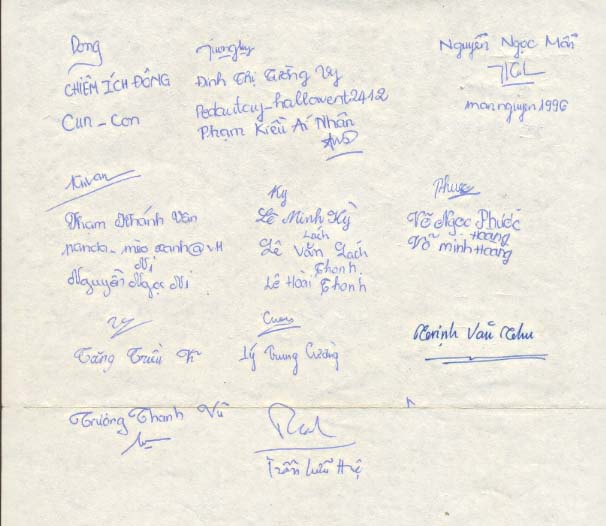 Dong
CHIÊM ÍCH ĐÔNG
Cun - Con
Tuongvy
Đinh Thị Tường Vy
Pedautuy_hallowent2412
Phạm Kiều Ái Nhân
Nguyễn Ngọc Mẫn
man nguyen 1996
Phạm Khánh Vân
panda_mio xanh@VH
Ni
Nguyễn Ngọc Ni
Ky
Lê Minh Kỳ
Lách
Lê Văn Lách
Thanh
Lê Hoài Thanh
Phuoc
Võ Ngọc Phước
Hoang
Võ Minh Hoang
Vy
Tăng Triều Vĩ
Cuong
Lý Trung Cường
Trịnh Văn Như
Trương Thanh Vũ
Trần Lưu Huệ